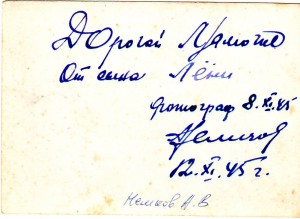 Дорогой Мамочке
От сына Лёни
Фотограф 8.XI.45
Немков
12.XI.45 г.
Немков А.В